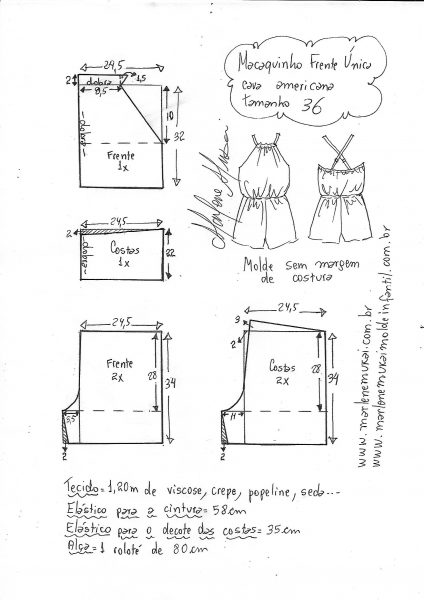 Macaquinho Frente Única
cava americana
tamanho 36
24,5
2
dobra
1,5
8,5
10
32
dobra
Frente
1x
Marlene Mukai
24,5
2
dobra
Costas
1x
22
Molde sem margem
de costura
24,5
Frente
2x
28
34
5,5
2
24,5
3
2
Costas
2x
28
34
11
2
www.marlenemukai.com.br
www.marlenemukaimoldeinfantil.com.br
Tecido = 1,20m de viscose, crepe, popeline, seda...
Elástico para a cintura = 58cm
Elástico para o decote das costas = 35cm
Alça = 1 rolotê de 80cm